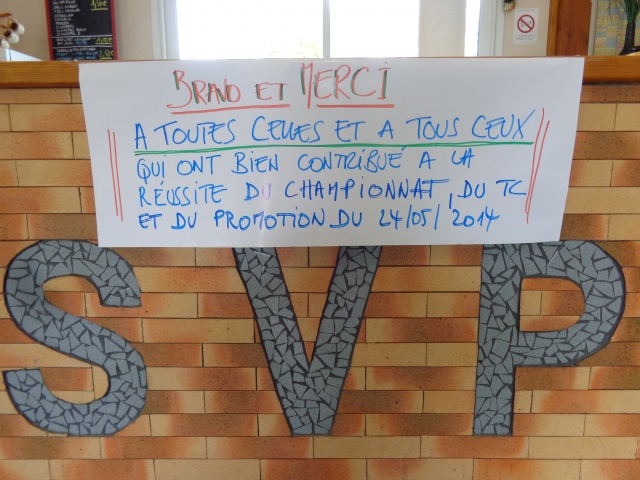 BRAVO ET MERCI
A TOUTES CELLES ET A TOUS CEUX
QUI ONT BIEN CONTRIBUÉ A LA
RÉUSSITE DU CHAMPIONNAT, DU TC
ET DU PROMOTION DU 24/05/2014
SVP